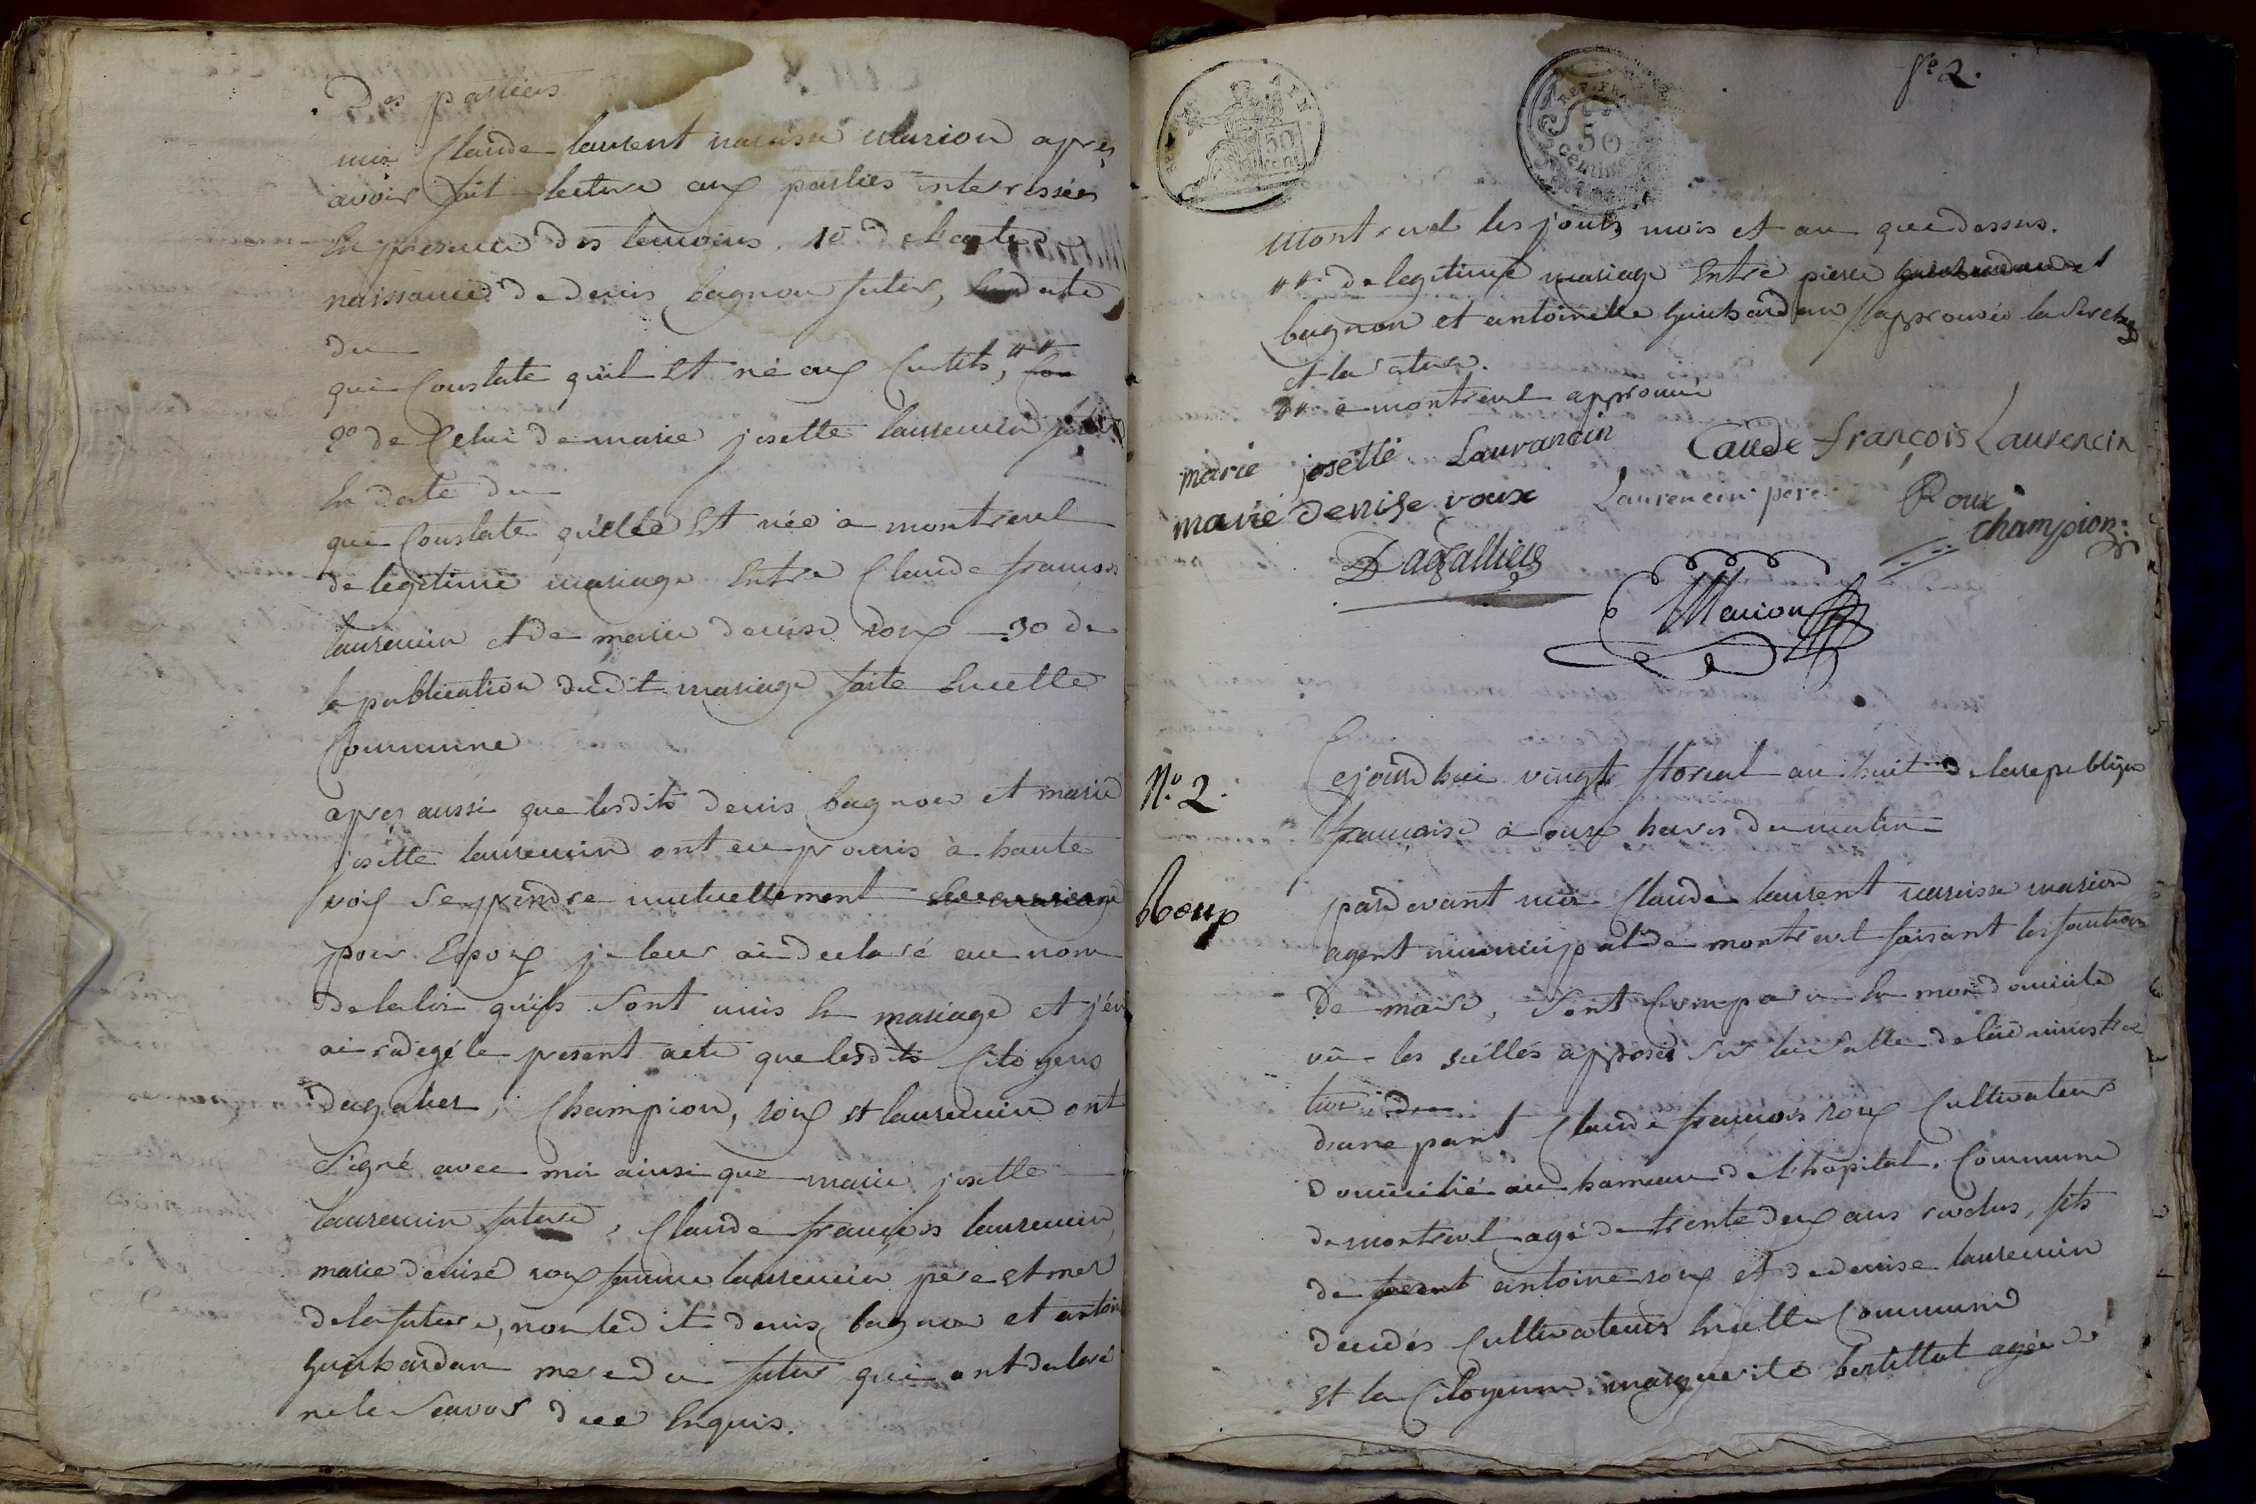 Des parties
moi Claude laurent narcisse marion après
avoir fait lecture aux parties interressées
En presence des temoins. 1º de l'acte de
naissance de denis bagnon futur, En date
du
qui Constate qu'il Et né aux Curtils, ++
2º de Celui de marie josette laurencin
En date du
qui Constate qu'elle Et née a montrevel
de legitime mariage Entre Claude francois
laurencin et de marie denise roux 3º de
la publication dudit mariage faite Enicelle
Commune
après aussi que lesdits denis bagnon et marie
josette laurencin ont eu promis à haute
voix se prendre mutuellement En mariage
pour Epoux je leur ai declaré au nom
de la loi qu'ils sont unis En mariage et j'en
ai redigé le present acte que lesdits Citoyens
dagalier, Champion, roux et laurencin ont
signé avec moi ainsi que marie josette
laurencin future, Claude francois laurencin,
marie denise roux femme laurencin pere et mere
de la future, non ledit denis bagnon et antoin
guichardan mere du futur qui ont declaré
ne le scavoir de ce Enquis.
fº 2.
50
REP. FRA.
50
centimes
Montrevel les jours, mois et an que dessus.
++ de legitime mariage Entre pierre
bagnon et antoinette guichardan / approuvée la surchage
et la rature.
++ a montrevel approuvé
marie josette Lauranain Caude françois Laurencin
marie denise roux Laurencin pere Roux
champion
Dagallier
Marion
Nº 2.
Cejourd'hui vingt floreal an huit de la republique
française à onze heures du matin
Roux
pardevant moi Claude laurent narcisse marion
agent municipal de montrevel faisant les fonctions
de maire, sont Comparu En mon domicile
vu les scellés apposés sur la salle de l'administra
tion
d'une part Claude françois roux Cultivateur
domicilié au hameau de l'hopital, Commune
de montrevel agé de trente deux ans revolus, fils
de antoine roux et de denise laurencin
decedés Cultivateurs Enicelle Commune
Et la Citoyenne marguerite bertillot agée